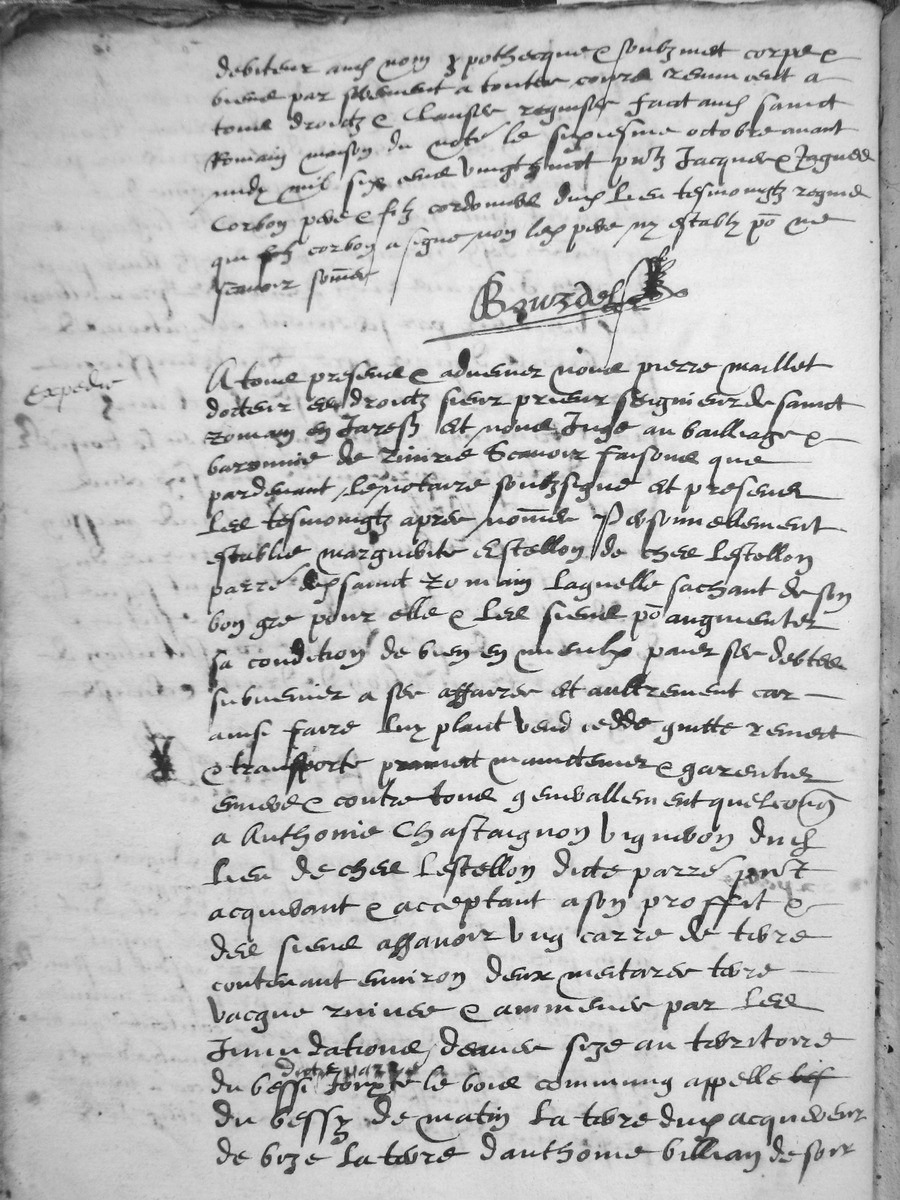 debiteur aud nom ypothecque & soubzmet corps &
biens par serement a toutes cours renuncent a
tous droictz & clauses requises faict aud sainct
Romain maison du notre le sixiesme octobre avant
midy mil six cens vingt huict pntz Jacques & Agnees
Corbon pere & filz cordonnier dud lieu tesmoingtz requis
qui filz corbon a signe non led pere ny establ po ne
scavoir somme
Expedie
A tous presens & advenir nous pierre maillet
docteur es droictz sieur prieur seigneur de sainct
Romain en Jarestz Et nous Juge au bailliage &
baronnie de Rivirie Scavoir faisons que
pardevant le notaire soubzsigne et presens
les tesmoingtz apres nommes Personnellement
establie marguerite Estellon de chez Lestellon
parre dud sainct Romain laquelle sachant de son
bon gre pour elle & les siens po augmenter
sa condition de bien en mieulx paier ses debtes
subvenir a ses affaires et aultrement car
ainsi faire luy plaict vend cedde quitte remect
& transporte promect maintenir & garentier
envers & contre tous generallement quelconq
a Anthonie Chastaignon vigneron dud
lieu de chez Lestellon dicte parre pnt
acquerant & acceptant a son proffict &
des siens assavoir ung carre de terre
contenant environ deux mestares terre
vacque ruinee & ammenee par les
Innundations deaues size au territoire
du bessi Joixte le bois commung appelle
du bessy de matin la terre dud acquereur
de bize la terre danthoine villian de soir